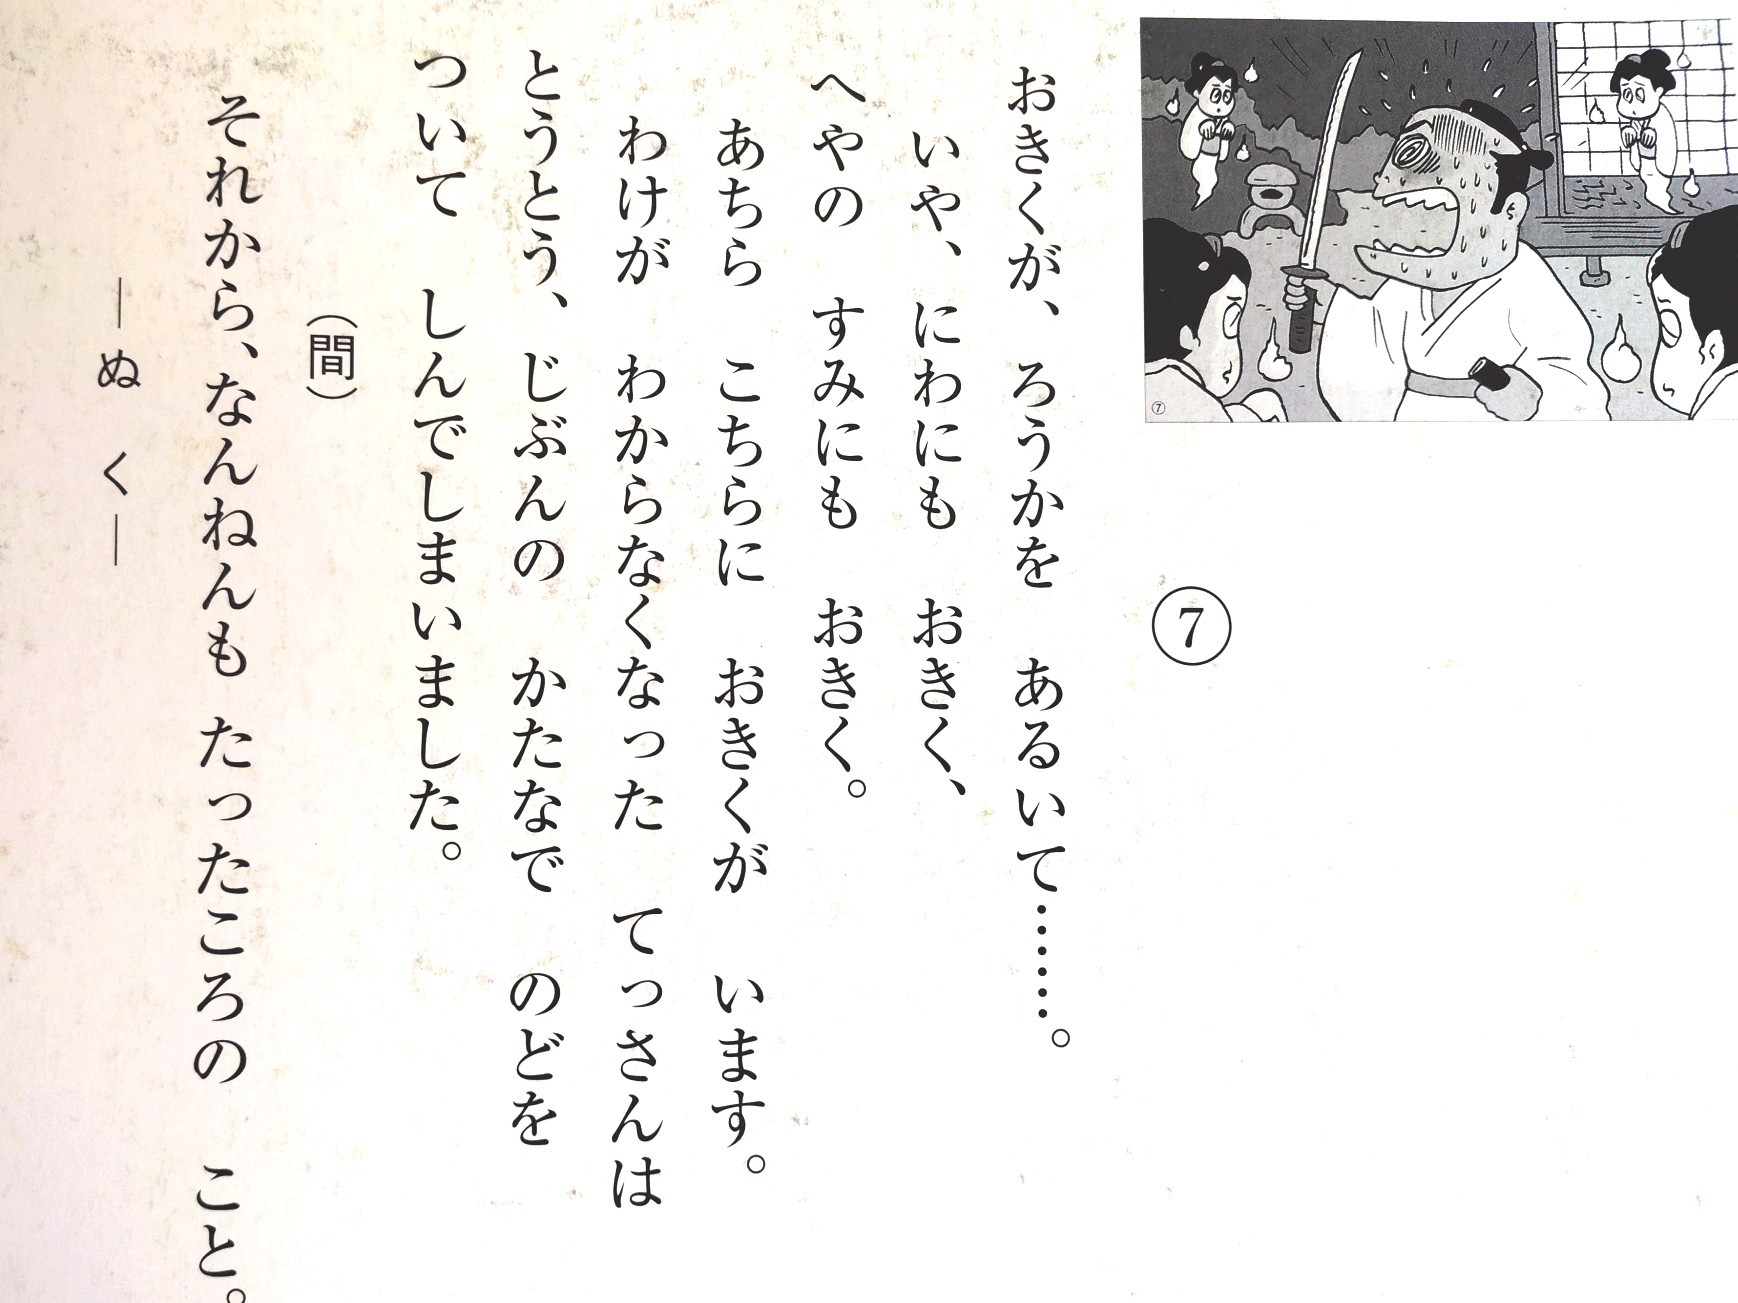 ⑦
⑦
おきくが、ろうかを　あるいて……。
いや、にわにも　おきく、
へやの　すみにも　おきく。
あちら　こちらに　おきくが　います。
わけが　わからなくなった　てっさんは
とうとう、じぶんの　かたなで　のどを
ついて　しんでしまいました。
（間）
それから、なんねんも　たったころの　こと。
―ぬ　く―